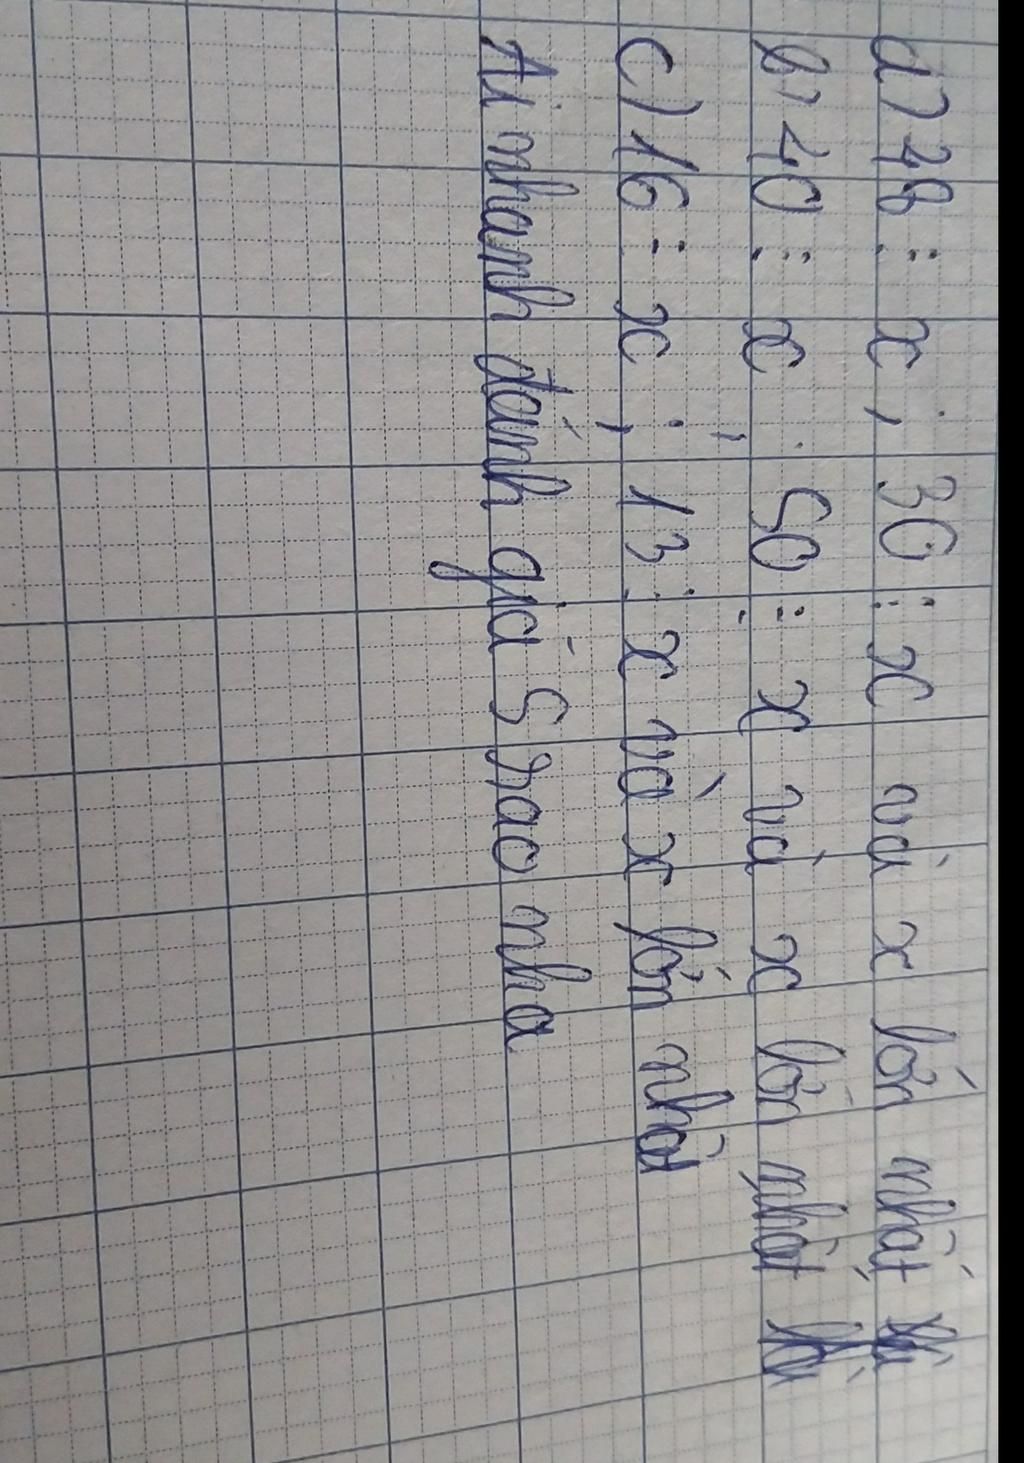 a) 48 ⋮ x ; 30 ⋮ x và x lớn nhất
b) 40 ⋮ x ; 50 ⋮ x và x lớn nhất
c) 16 ⋮ x ; 13 ⋮ x và x lớn nhất
Ai nhanh đánh giá 5 sao nha